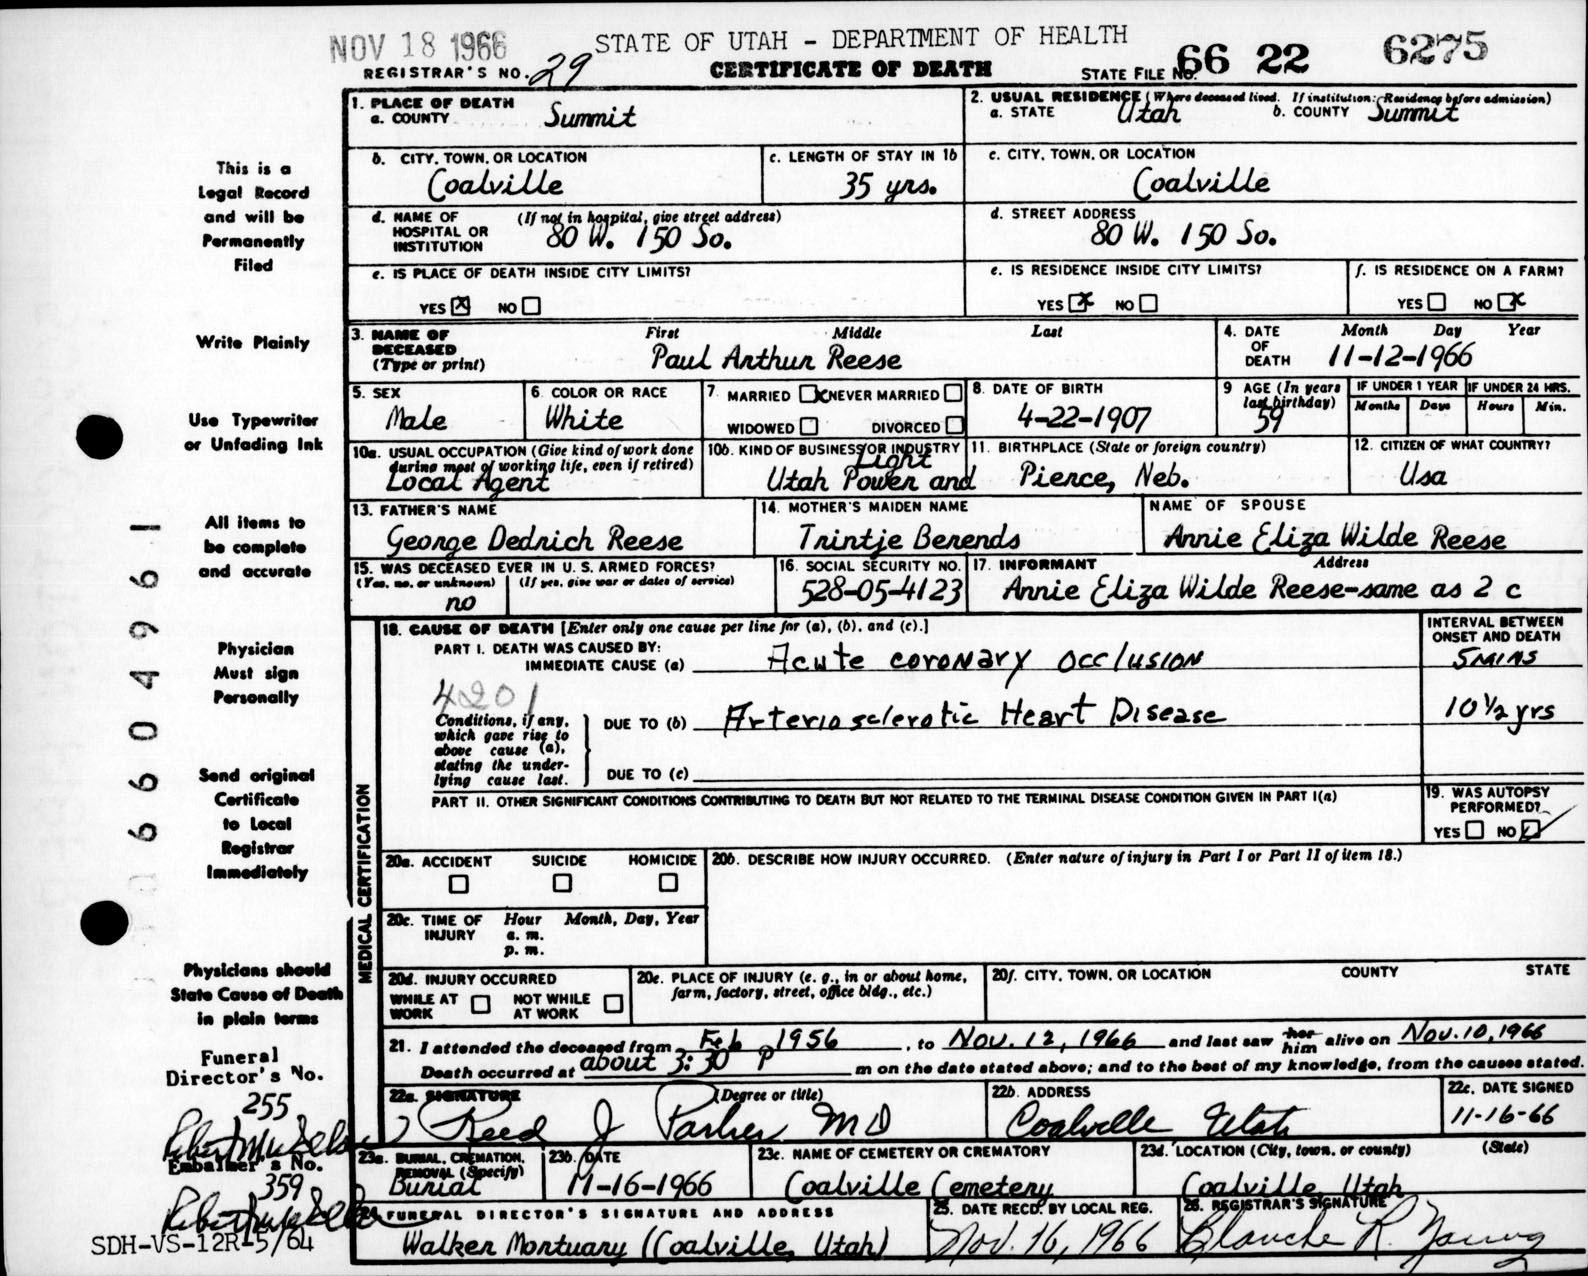 NOV 18 1966
STATE OF UTAH - DEPARTMENT OF HEALTH
REGISTRAR'S NO. 29
CERTIFICATE OF DEATH
STATE FILE NO. 66 22 6275
1. PLACE OF DEATH
a. COUNTY Summit
2. USUAL RESIDENCE (Where deceased lived. If institution: Residence before admission)
a. STATE Utah b. COUNTY Summit
b. CITY, TOWN, OR LOCATION
Coalville
c. LENGTH OF STAY IN 1b
35 yrs.
c. CITY, TOWN, OR LOCATION
Coalville
d. NAME OF HOSPITAL OR INSTITUTION (If not in hospital, give street address)
80 W. 150 So.
d. STREET ADDRESS
80 W. 150 So.
e. IS PLACE OF DEATH INSIDE CITY LIMITS?
YES X NO
e. IS RESIDENCE INSIDE CITY LIMITS?
YES X NO
f. IS RESIDENCE ON A FARM?
YES NO X
3. NAME OF DECEASED (Type or print)
First Middle Last
Paul Arthur Reese
4. DATE OF DEATH
Month Day Year
11-12-1966
5. SEX
Male
6. COLOR OR RACE
White
7. MARRIED X NEVER MARRIED
WIDOWED DIVORCED
8. DATE OF BIRTH
4-22-1907
9 AGE (In years last birthday)
59
IF UNDER 1 YEAR
Months Days
IF UNDER 24 HRS.
Hours Min.
10a. USUAL OCCUPATION (Give kind of work done during most of working life, even if retired)
Local Agent
10b. KIND OF BUSINESS OR INDUSTRY
Utah Power and Light
11. BIRTHPLACE (State or foreign country)
Pierce, Neb.
12. CITIZEN OF WHAT COUNTRY?
Usa
13. FATHER'S NAME
George Dedrich Reese
14. MOTHER'S MAIDEN NAME
Trintje Berends
NAME OF SPOUSE
Annie Eliza Wilde Reese
15. WAS DECEASED EVER IN U.S. ARMED FORCES?
(Yes, no, or unknown) (If yes, give war or dates of service)
no
16. SOCIAL SECURITY NO.
528-05-4123
17. INFORMANT Address
Annie Eliza Wilde Reese-same as 2 c
MEDICAL CERTIFICATION
18. CAUSE OF DEATH [Enter only one cause per line for (a), (b), and (c).]
INTERVAL BETWEEN ONSET AND DEATH
PART I. DEATH WAS CAUSED BY:
IMMEDIATE CAUSE (a) Acute coronary occlusion 5 mins
4201
Conditions, if any, which gave rise to above cause (a), stating the underlying cause last.
DUE TO (b) Arteriosclerotic Heart Disease 10 1/2 yrs
DUE TO (c)
PART II. OTHER SIGNIFICANT CONDITIONS CONTRIBUTING TO DEATH BUT NOT RELATED TO THE TERMINAL DISEASE CONDITION GIVEN IN PART I(a)
19. WAS AUTOPSY PERFORMED?
YES NO ✓
20a. ACCIDENT SUICIDE HOMICIDE
20b. DESCRIBE HOW INJURY OCCURRED. (Enter nature of injury in Part I or Part II of item 18.)
20c. TIME OF INJURY Hour Month, Day, Year
a. m.
p. m.
20d. INJURY OCCURRED
WHILE AT WORK NOT WHILE AT WORK
20e. PLACE OF INJURY (e. g., in or about home, farm, factory, street, office bldg., etc.)
20f. CITY, TOWN, OR LOCATION COUNTY STATE
21. I attended the deceased from Feb 1956, to Nov. 12, 1966 and last saw her him alive on Nov. 10, 1966
Death occurred at about 3:30 P m on the date stated above; and to the best of my knowledge, from the causes stated.
22a. SIGNATURE (Degree or title)
Reed J Parker MD
22b. ADDRESS
Coalville Utah
22c. DATE SIGNED
11-16-66
23a. BURIAL, CREMATION, REMOVAL (Specify)
Burial
23b. DATE
11-16-1966
23c. NAME OF CEMETERY OR CREMATORY
Coalville Cemetery
23d. LOCATION (City, town, or county) (State)
Coalville, Utah
24. FUNERAL DIRECTOR'S SIGNATURE AND ADDRESS
Walker Mortuary (Coalville, Utah)
25. DATE RECD. BY LOCAL REG.
Nov. 16, 1966
26. REGISTRAR'S SIGNATURE
Blanche R. Young
This is a
Legal Record
and will be
Permanently
Filed
Write Plainly
Use Typewriter
or Unfading Ink
All items to
be complete
and accurate
Physician
Must sign
Personally
Send original
Certificate
to Local
Registrar
Immediately
Physicians should
State Cause of Death
in plain terms
Funeral
Director's No.
255
Embalmer's No.
359
SDH-VS-12R-5/64
6604961